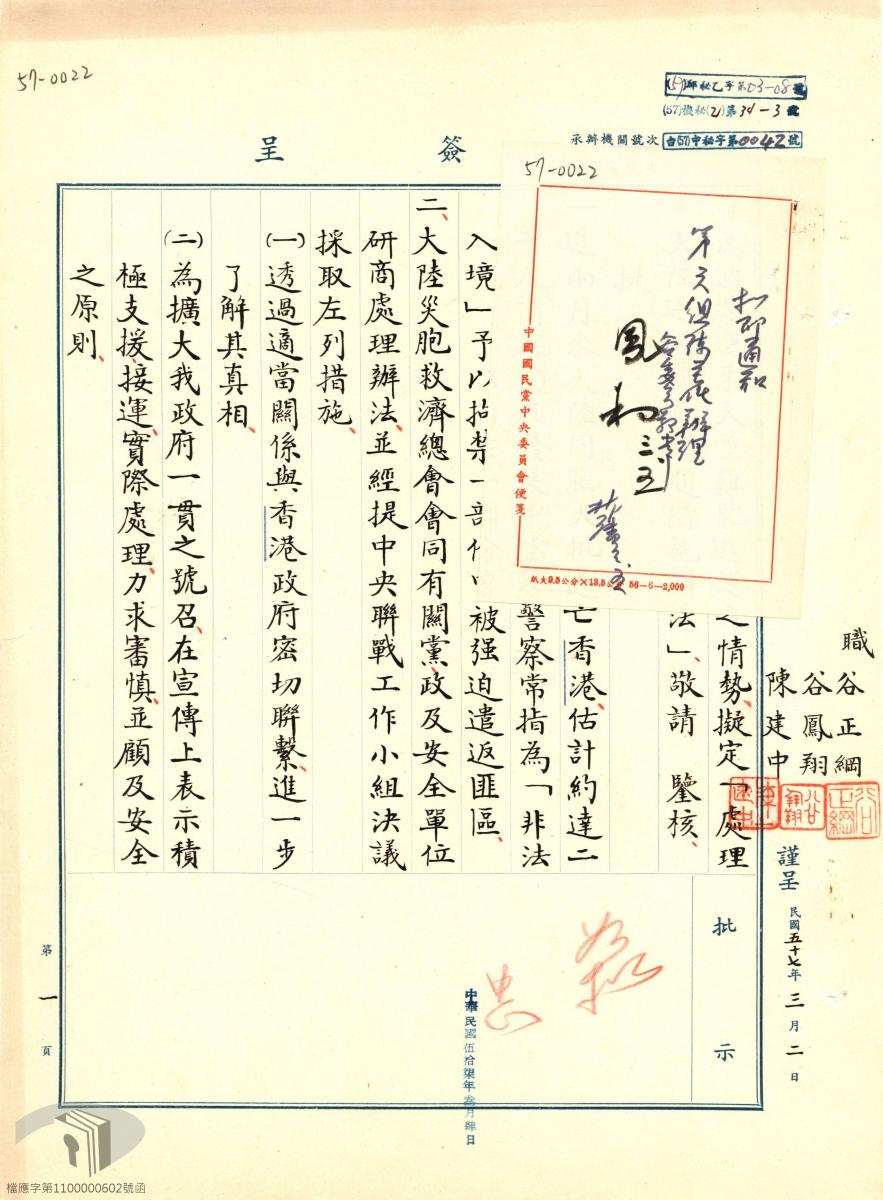 57-0022
(57)中秘乙字第03-08號
(57)機秘(乙)第34-3號
承辦機關號次 台(57)中秘字第0042號
簽呈
57-0022
擬即通知
中國國民黨中央委員會便箋
紙大9.5公分×13.5公分 56-6-2,000
之情勢、擬定「處理
法」、敬請 鑒核、
亡香港、估計約達二
警察常指為「非法
入境」予以拘禁一部份
被强迫遣返匪區、
二、大陸災胞救濟總會會同有關黨、政及安全單位
研商處理辦法、並經提中央聯戰工作小組決議
採取左列措施、
(一)透過適當關係與香港政府密切聯繫、進一步
了解其真相、
(二)為擴大我政府一貫之號召、在宣傳上表示積
極支援、接運、實際處理、力求審慎、並顧及安全
之原則、
職 谷正綱
谷鳳翔
陳建中
謹呈 民國五十七年三月二日
批示
如擬
中華民國伍拾柒年叁月肆日
第一頁
檔應字第1100000602號函